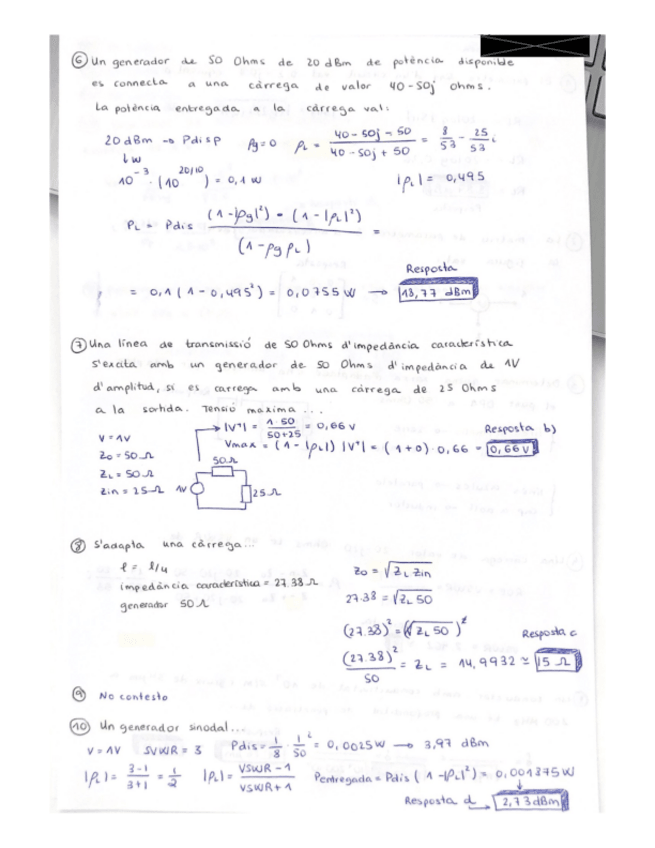 ⑥ Un generador de 50 Ohms de 20 dBm de potència disponible
es connecta a una càrrega de valor 40-50j ohms.
La potència entregada a la càrrega val:
20 dBm → Pdisp ρg=0 ρL = (40-50j-50)/(40-50j+50) = 3/53 - 25/53 i
↓ W
10^-3 · (10^20/10) = 0,1 W |ρL| = 0,495
PL = Pdis (1-|ρg|²) - (1-|ρL|²) / (1-ρg ρL) =
Resposta
= 0,1 (1-0,495²) = 0,0755 W → 18,77 dBm
⑦ Una línea de transmissió de 50 Ohms d'impedància característica
s'excita amb un generador de 50 Ohms d'impedància de 1V
d'amplitud, si es carrega amb una càrrega de 25 Ohms
a la sortida. Tensió màxima...
|V+| = 1·50/(50+25) = 0,66 V Resposta b)
V = 1V
Vmax = (1-|ρL|) |V+| = (1+0)·0,66 = 0,66 V
Z0 = 50 Ω
50Ω
ZL = 50 Ω
Zin = 25 Ω 1V 25 Ω
⑧ S'adapta una càrrega...
ℓ = ℓ/4
impedància característica = 27.38 Ω
generador 50 Ω
Z0 = √ZL Zin
27.38 = √ZL 50
(27.38)² = (√ZL 50)²
Resposta c
(27.38)²/50 = ZL = 14,9932 ≃ 15 Ω
⑨ No contesto
⑩ Un generador sinodal...
V = 1V SVWR = 3 Pdis = 1/8 · 1²/50 = 0,0025W → 3,97 dBm
|ρL| = 3-1/3+1 = 1/2 |ρL| = VSWR-1/VSWR+1 Pentregada = Pdis (1-|ρL|²) = 0,001875 W
Resposta d → 2,73 dBm